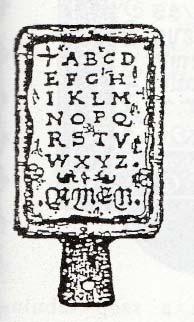 +ABCD
EFGH
IKLM
NOPQ
RSTV
WXYZ.
AMEN.